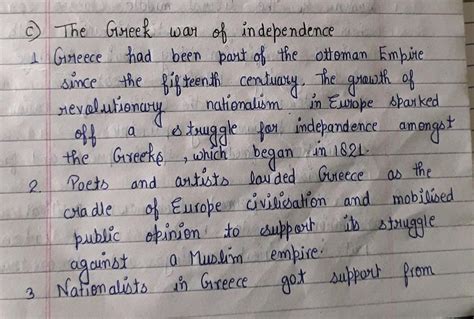 c) The Greek war of independence
1. Greece had been part of the ottoman Empire
since the fifteenth centuary. The growth of
revolutionary nationalism in Europe sparked
off a struggle for independance amongst
the Greeks, which began in 1821.
2. Poets and artists lauded Greece as the
cradle of Europe civilisation and mobilised
public opinion to support its struggle
against a Muslim empire.
3. Nationalists in Greece got support from